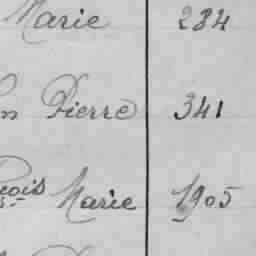 Marie 284
Pierre 341
Marie 1905